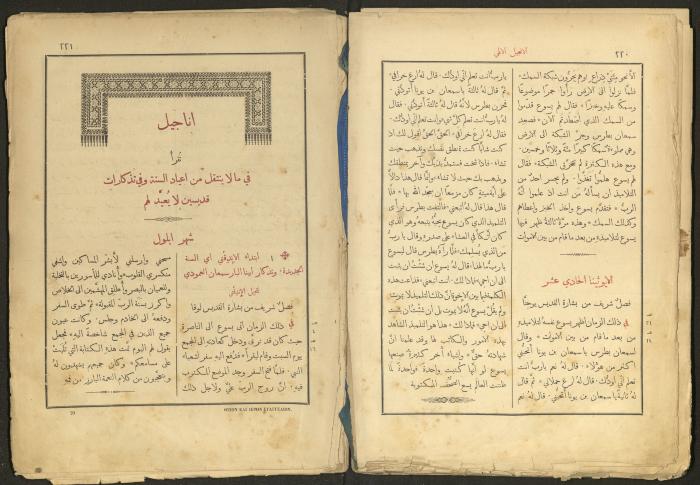 ٢٢٠
الانجيل الالهي
الّا نحو مئتي ذراع وهم يجرّون شبكة السمك *
فلما نزلوا الى الارض رأوا جمرًا موضوعًا
وسمكًا عليه وخبزًا * فقال لهم يسوع قدّموا
من السمك الذي اصطدتم الآن * فصعد
سمعان بطرس وجرّ الشبكة الى الارض
وهي مملوءة سمكًا كبيرًا مئة وثلاثة وخمسين.
ومع هذه الكثرة لم تتخرّق الشبكة * فقال
لهم يسوع هلمّوا تغدّوا. ولم يجسر احد من
التلاميذ ان يسأله من انت اذ علموا انه
الرب * فتقدّم يسوع واخذ الخبز واعطاهم
وكذلك السمك * وهذه مرّة ثالثة ظهر فيها
يسوع لتلاميذه من بعد ما قام من بين الاموات
الايوثينا الحادي عشر
فصل شريف من بشارة القديس يوحنّا
في ذلك الزمان اظهر يسوع نفسه لتلاميذه
من بعد ما قام من بين الاموات * وقال
لسمعان بطرس يا سمعان بن يونا أتحبني
اكثر من هؤلاء * قال له نعم يا رب انت
تعلم اني اودّك. قال له ارعَ حملاني * ثم قال
له ثانيةً يا سمعان بن يونا أتحبني. قال له نعم
يا رب انت تعلم اني اودّك. قال له ارعَ خرافي *
ثم قال له ثالثةً يا سمعان بن يونا أتودّني.
فحزن بطرس لانه قال له ثالثةً أتودّني. فقال
له يا رب انت تعلم كل شيء وانت تعلم اني اودّك.
قال له ارعَ خرافي * الحق الحق اقول لك اذ
كنت شابًّا كنت تمنطق نفسك وتذهب حيث
تشاء. فاذا شخت فستمدّ يديك وآخر يمنطقك
ويذهب بك حيث لا تشاء * وانّما قال هذا دالًّا
على اية ميتة كان مزمعًا ان يمجّد الله بها * فلما
قال هذا قال له اتبعني * فالتفت بطرس فرأى
التلميذ الذي كان يسوع يحبّه يتبعه وهو الذي
كان اتّكأ في العشاء على صدره وقال يا رب
من الذي يسلمك * فلما رآه بطرس قال ليسوع
يا رب ما لهذا. قال له يسوع ان شئت ان يثبت
الى ان اجيء فماذا لك. انت اتبعني * فذاعت هذه
الكلمة فيما بين الاخوة ان ذلك التلميذ لا يموت.
ولم يقل يسوع انه لا يموت بل ان شئت ان يثبت
الى ان اجيء فماذا لك * هذا هو التلميذ الشاهد
بهذه الامور والكاتب لها وقد علمنا انّ
شهادته حقّ * واشياء أخر كثيرة صنعها
يسوع لو انها كُتبت واحدة فواحدة لما
ظننت العالم يسع الصحف المكتوبة
٢٢١
اناجيل
تُقرأ
في ما لا ينتقل من اعياد السنة وفي تذكارات
قديسين لا يُعيَّد لهم
شهر ايلول
١ ابتداء الانديقتي اي السنة
الجديدة. وتذكار ابينا البار سمعان العمودي
فصل شريف من بشارة القديس لوقا
في ذلك الزمان اتى يسوع الى الناصرة
حيث كان قد تربّى ودخل كعادته الى المجمع
يوم السبت وقام ليقرأ * فدُفع اليه سفر اشعيا
النبي. فلما فتح السفر وجد الموضع المكتوب
فيه. انّ روح الرب عليَّ ولاجل ذلك
مسحني وارسلني لابشّر المساكين واشفي
منكسري القلوب * وانادي للمأسورين بالتخلية
وللعميان بالبصر وأُطلق المهشّمين الى الخلاص
واكرز بسنة الرب المقبولة * ثم طوى السفر
ودفعه الى الخادم وجلس. وكانت عيون
جميع الذين في المجمع شاخصة اليه * فجعل
يقول لهم اليوم تمّت هذه الكتابة التي تُليت
على مسامعكم * وكان جميعهم يشهدون له
ويتعجبون من كلام النعمة البارز من فمه
ΘΕΙΟΝ ΚΑΙ ΙΕΡΟΝ ΕΥΑΓΓΕΛΙΟΝ.